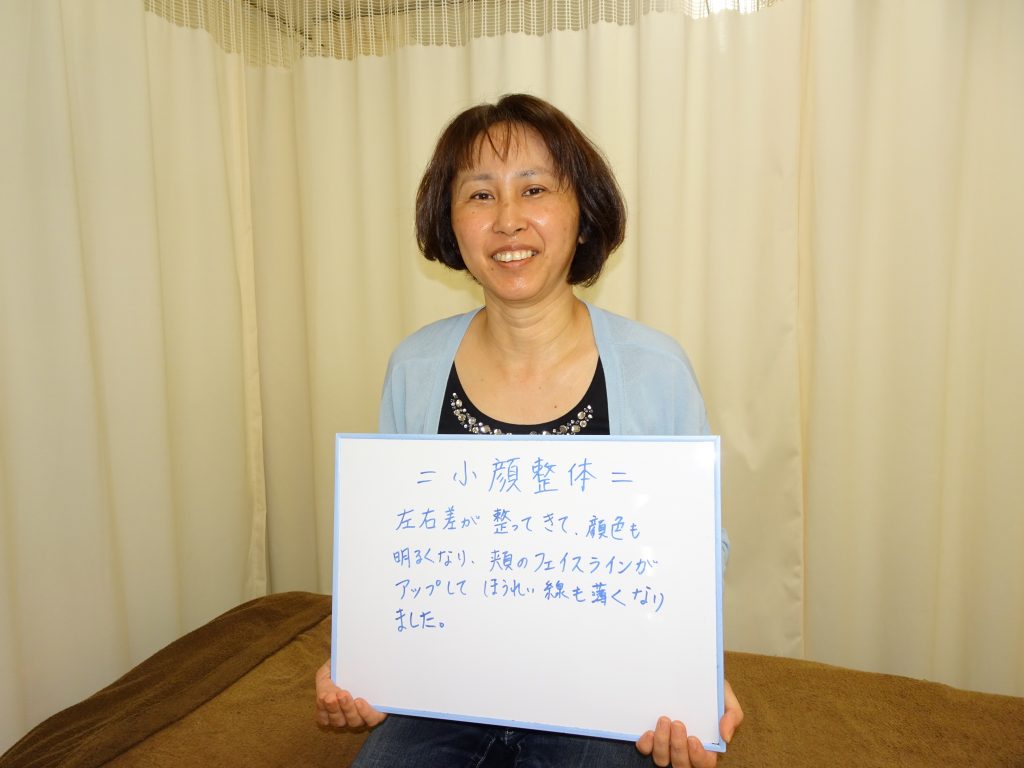 =小顔整体=
左右差が整ってきて、顔色も
明るくなり、頬のフェイスラインが
アップしてほうれい線も薄くなり
ました。